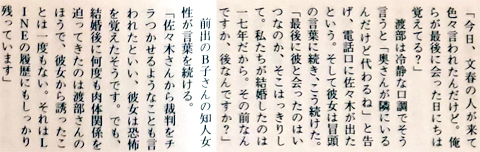 「今、文春の人が来て
色々言われたんだけど。俺
らが最後に会った日にちは
覚えてる？」
渡部は冷静な口調でそう
言うと「奥さんが隣にいる
んだけど代わるね」と告
げ、電話口に佐々木が出た
という。そして彼女は冒頭
の言葉に続き、こう続けた。
「最後に彼と会ったのはい
つなのか、そこはっきりし
て。私たちが結婚したのは
一七年だから。その前なん
ですか、後なんですか？」
前出のB子さんの知人女
性が言葉を続ける。
「佐々木さんから裁判をチ
ラつかせるようなことも言
われたといい、彼女は恐怖
を覚えたそうです。でも、
結婚後に何度も肉体関係を
迫ってきたのは渡部さんの
ほうで、彼女から誘ったこ
とは一度もない。それはL
INEの履歴にもしっかり
残っています」